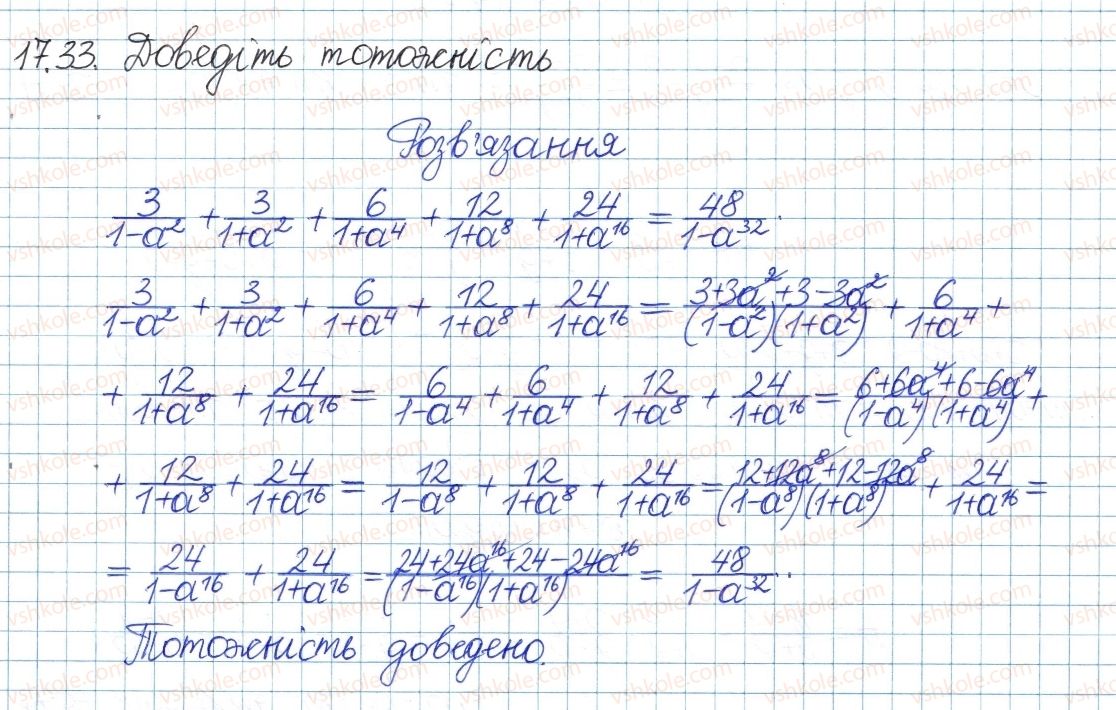 17.33. Доведіть тотожність
Розв'язання
3/(1-a²) + 3/(1+a²) + 6/(1+a⁴) + 12/(1+a⁸) + 24/(1+a¹⁶) = 48/(1-a³²).
3/(1-a²) + 3/(1+a²) + 6/(1+a⁴) + 12/(1+a⁸) + 24/(1+a¹⁶) = (3+3a²+3-3a²)/((1-a²)(1+a²)) + 6/(1+a⁴) +
+ 12/(1+a⁸) + 24/(1+a¹⁶) = 6/(1-a⁴) + 6/(1+a⁴) + 12/(1+a⁸) + 24/(1+a¹⁶) = (6+6a⁴+6-6a⁴)/((1-a⁴)(1+a⁴)) +
+ 12/(1+a⁸) + 24/(1+a¹⁶) = 12/(1-a⁸) + 12/(1+a⁸) + 24/(1+a¹⁶) = (12+12a⁸+12-12a⁸)/((1-a⁸)(1+a⁸)) + 24/(1+a¹⁶) =
= 24/(1-a¹⁶) + 24/(1+a¹⁶) = (24+24a¹⁶+24-24a¹⁶)/((1-a¹⁶)(1+a¹⁶)) = 48/(1-a³²).
Тотожність доведено.